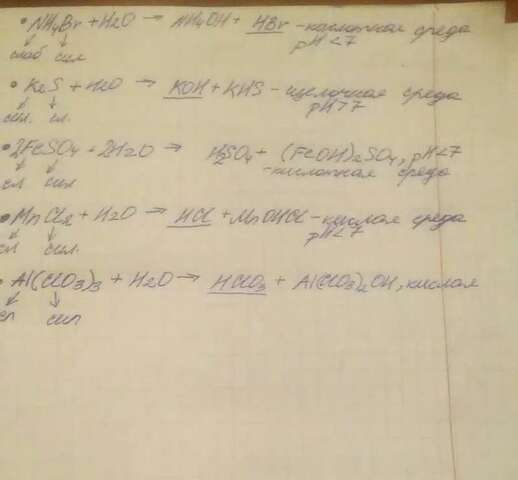 • NH4Br + H2O → NH4OH + HBr - кислотная среда
слаб сил pH < 7
• K2S + H2O → KOH + KHS - щелочная среда
сил. сл. pH > 7
• 2FeSO4 + 2H2O → H2SO4 + (FeOH)2SO4, pH < 7
сл сил - кислотная среда
• MnCl2 + H2O → HCl + MnOHCl - кислая среда
сл сил. pH < 7
• Al(ClO3)3 + H2O → HClO3 + Al(ClO3)2OH, кислая
сл сил